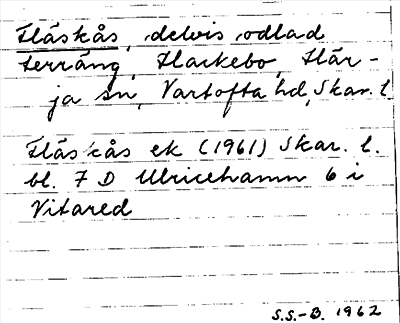 Fläskås, delvis odlad
terräng, Harkebo, Här-
ja sn, Vartofta hd, Skar. l.
Fläskås ek (1961) Skar. l.
bl. 7 D Ulricehamn 6 i
Vitared
S.S.-B. 1962